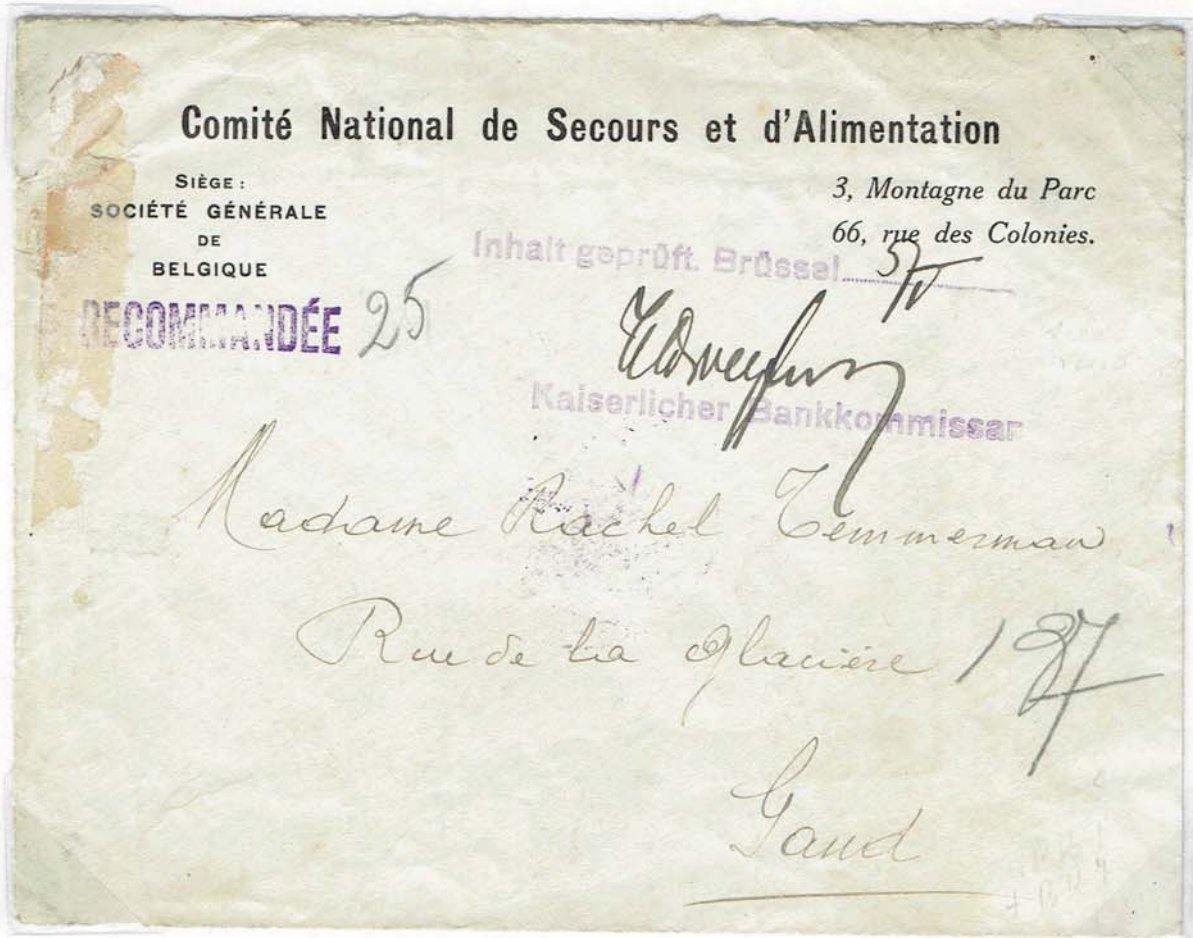 Comité National de Secours et d'Alimentation
SIÈGE :
SOCIÉTÉ GÉNÉRALE
DE
BELGIQUE
3, Montagne du Parc
66, rue des Colonies.
Inhalt geprüft. Brüssel 5/V
RECOMMANDÉE 25
Kaiserlicher Bankkommissar
Madame Rachel Temmerman
Rue de la Glacière 187
Gand